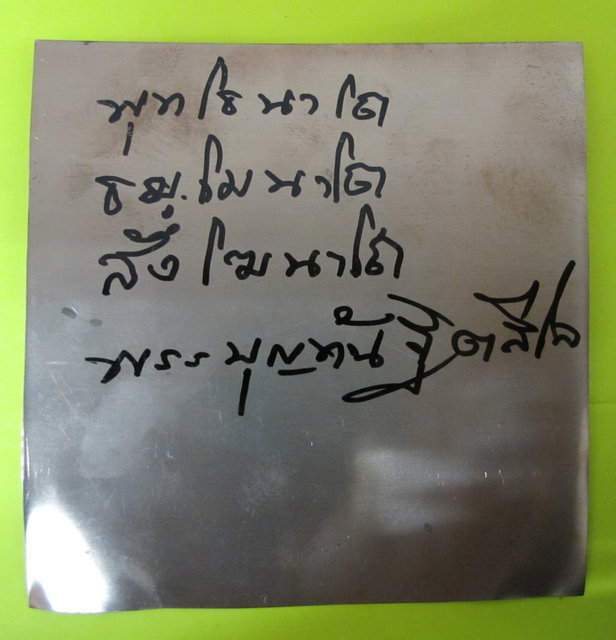 พุทโธนาโถ
ธมฺโมนาโถ
สังโฆนาโถ
พระบุญทัน ฐิตสีโล